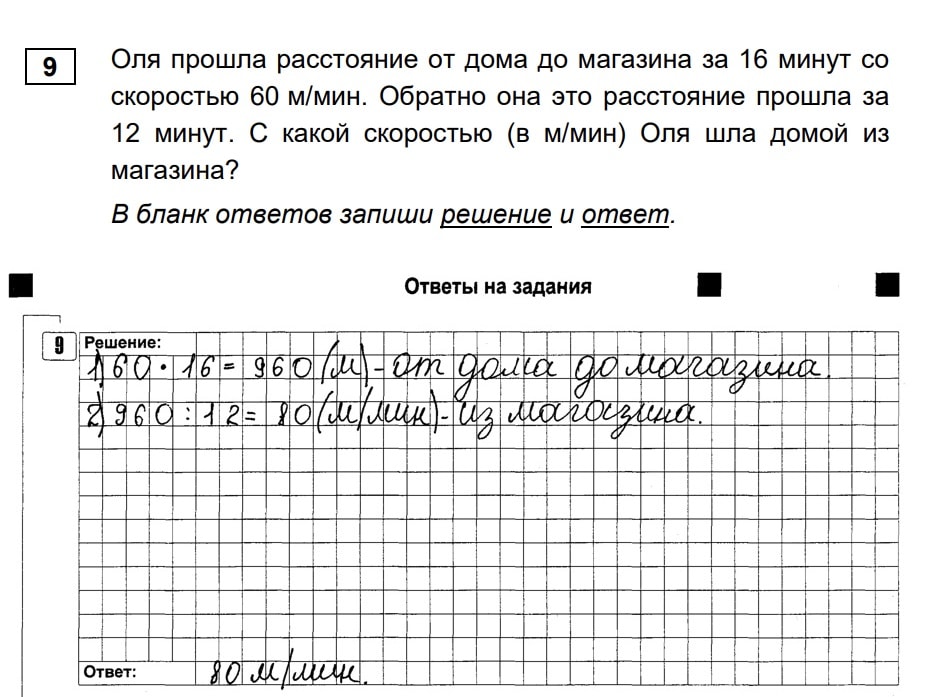 9
Оля прошла расстояние от дома до магазина за 16 минут со
скоростью 60 м/мин. Обратно она это расстояние прошла за
12 минут. С какой скоростью (в м/мин) Оля шла домой из
магазина?
В бланк ответов запиши решение и ответ.
Ответы на задания
9
Решение:
1) 60 · 16 = 960 (м) - от дома до магазина.
2) 960 : 12 = 80 (м/мин) - из магазина.
Ответ: 80 м/мин.